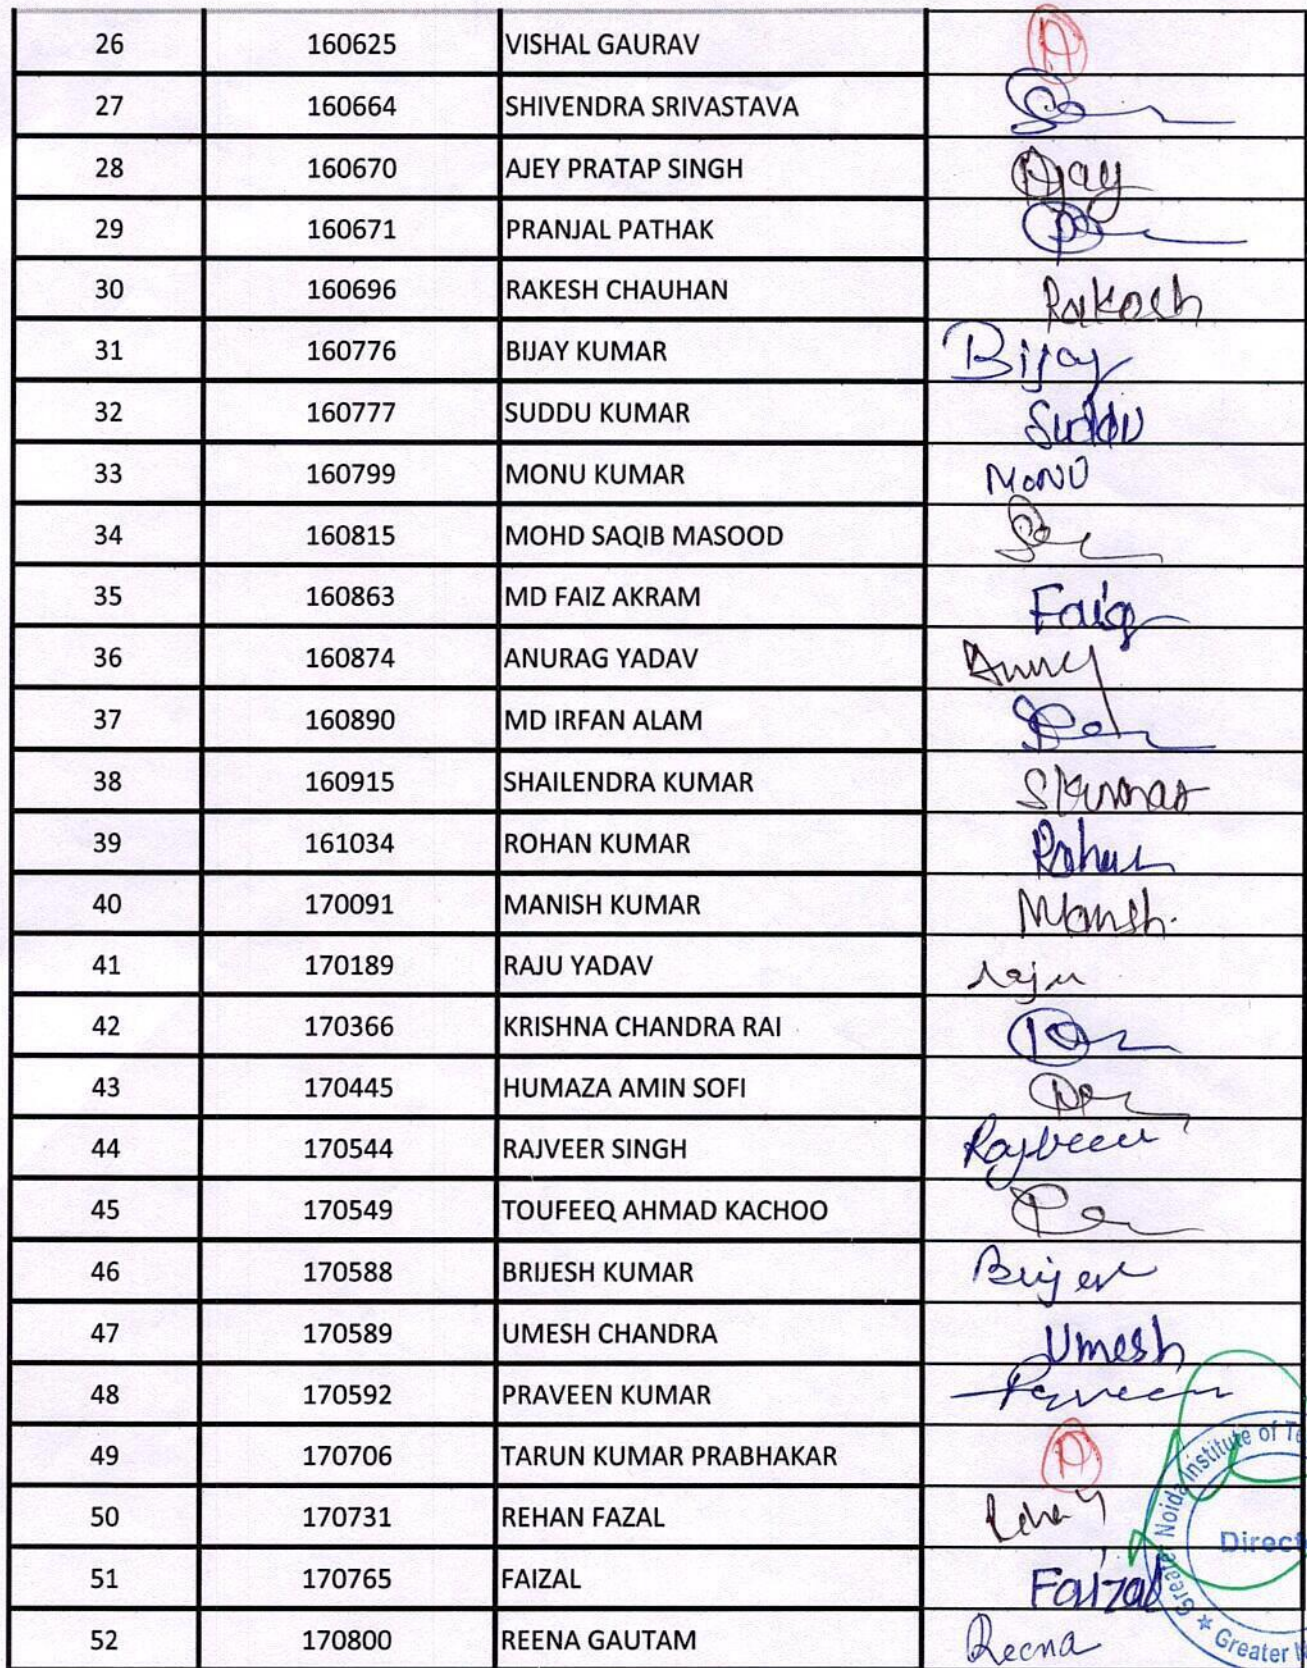 26 160625 VISHAL GAURAV A
27 160664 SHIVENDRA SRIVASTAVA
28 160670 AJEY PRATAP SINGH Ajay
29 160671 PRANJAL PATHAK
30 160696 RAKESH CHAUHAN Rakesh
31 160776 BIJAY KUMAR Bijay
32 160777 SUDDU KUMAR Suddu
33 160799 MONU KUMAR MONU
34 160815 MOHD SAQIB MASOOD
35 160863 MD FAIZ AKRAM Faiz
36 160874 ANURAG YADAV
37 160890 MD IRFAN ALAM
38 160915 SHAILENDRA KUMAR SKumar
39 161034 ROHAN KUMAR Rohan
40 170091 MANISH KUMAR Manish
41 170189 RAJU YADAV raju
42 170366 KRISHNA CHANDRA RAI
43 170445 HUMAZA AMIN SOFI
44 170544 RAJVEER SINGH Rajveer
45 170549 TOUFEEQ AHMAD KACHOO
46 170588 BRIJESH KUMAR Brijesh
47 170589 UMESH CHANDRA Umesh
48 170592 PRAVEEN KUMAR Praveen
49 170706 TARUN KUMAR PRABHAKAR A
50 170731 REHAN FAZAL
51 170765 FAIZAL Faizal
52 170800 REENA GAUTAM Reena
Greater Noida Institute of Te
Direct
Greater